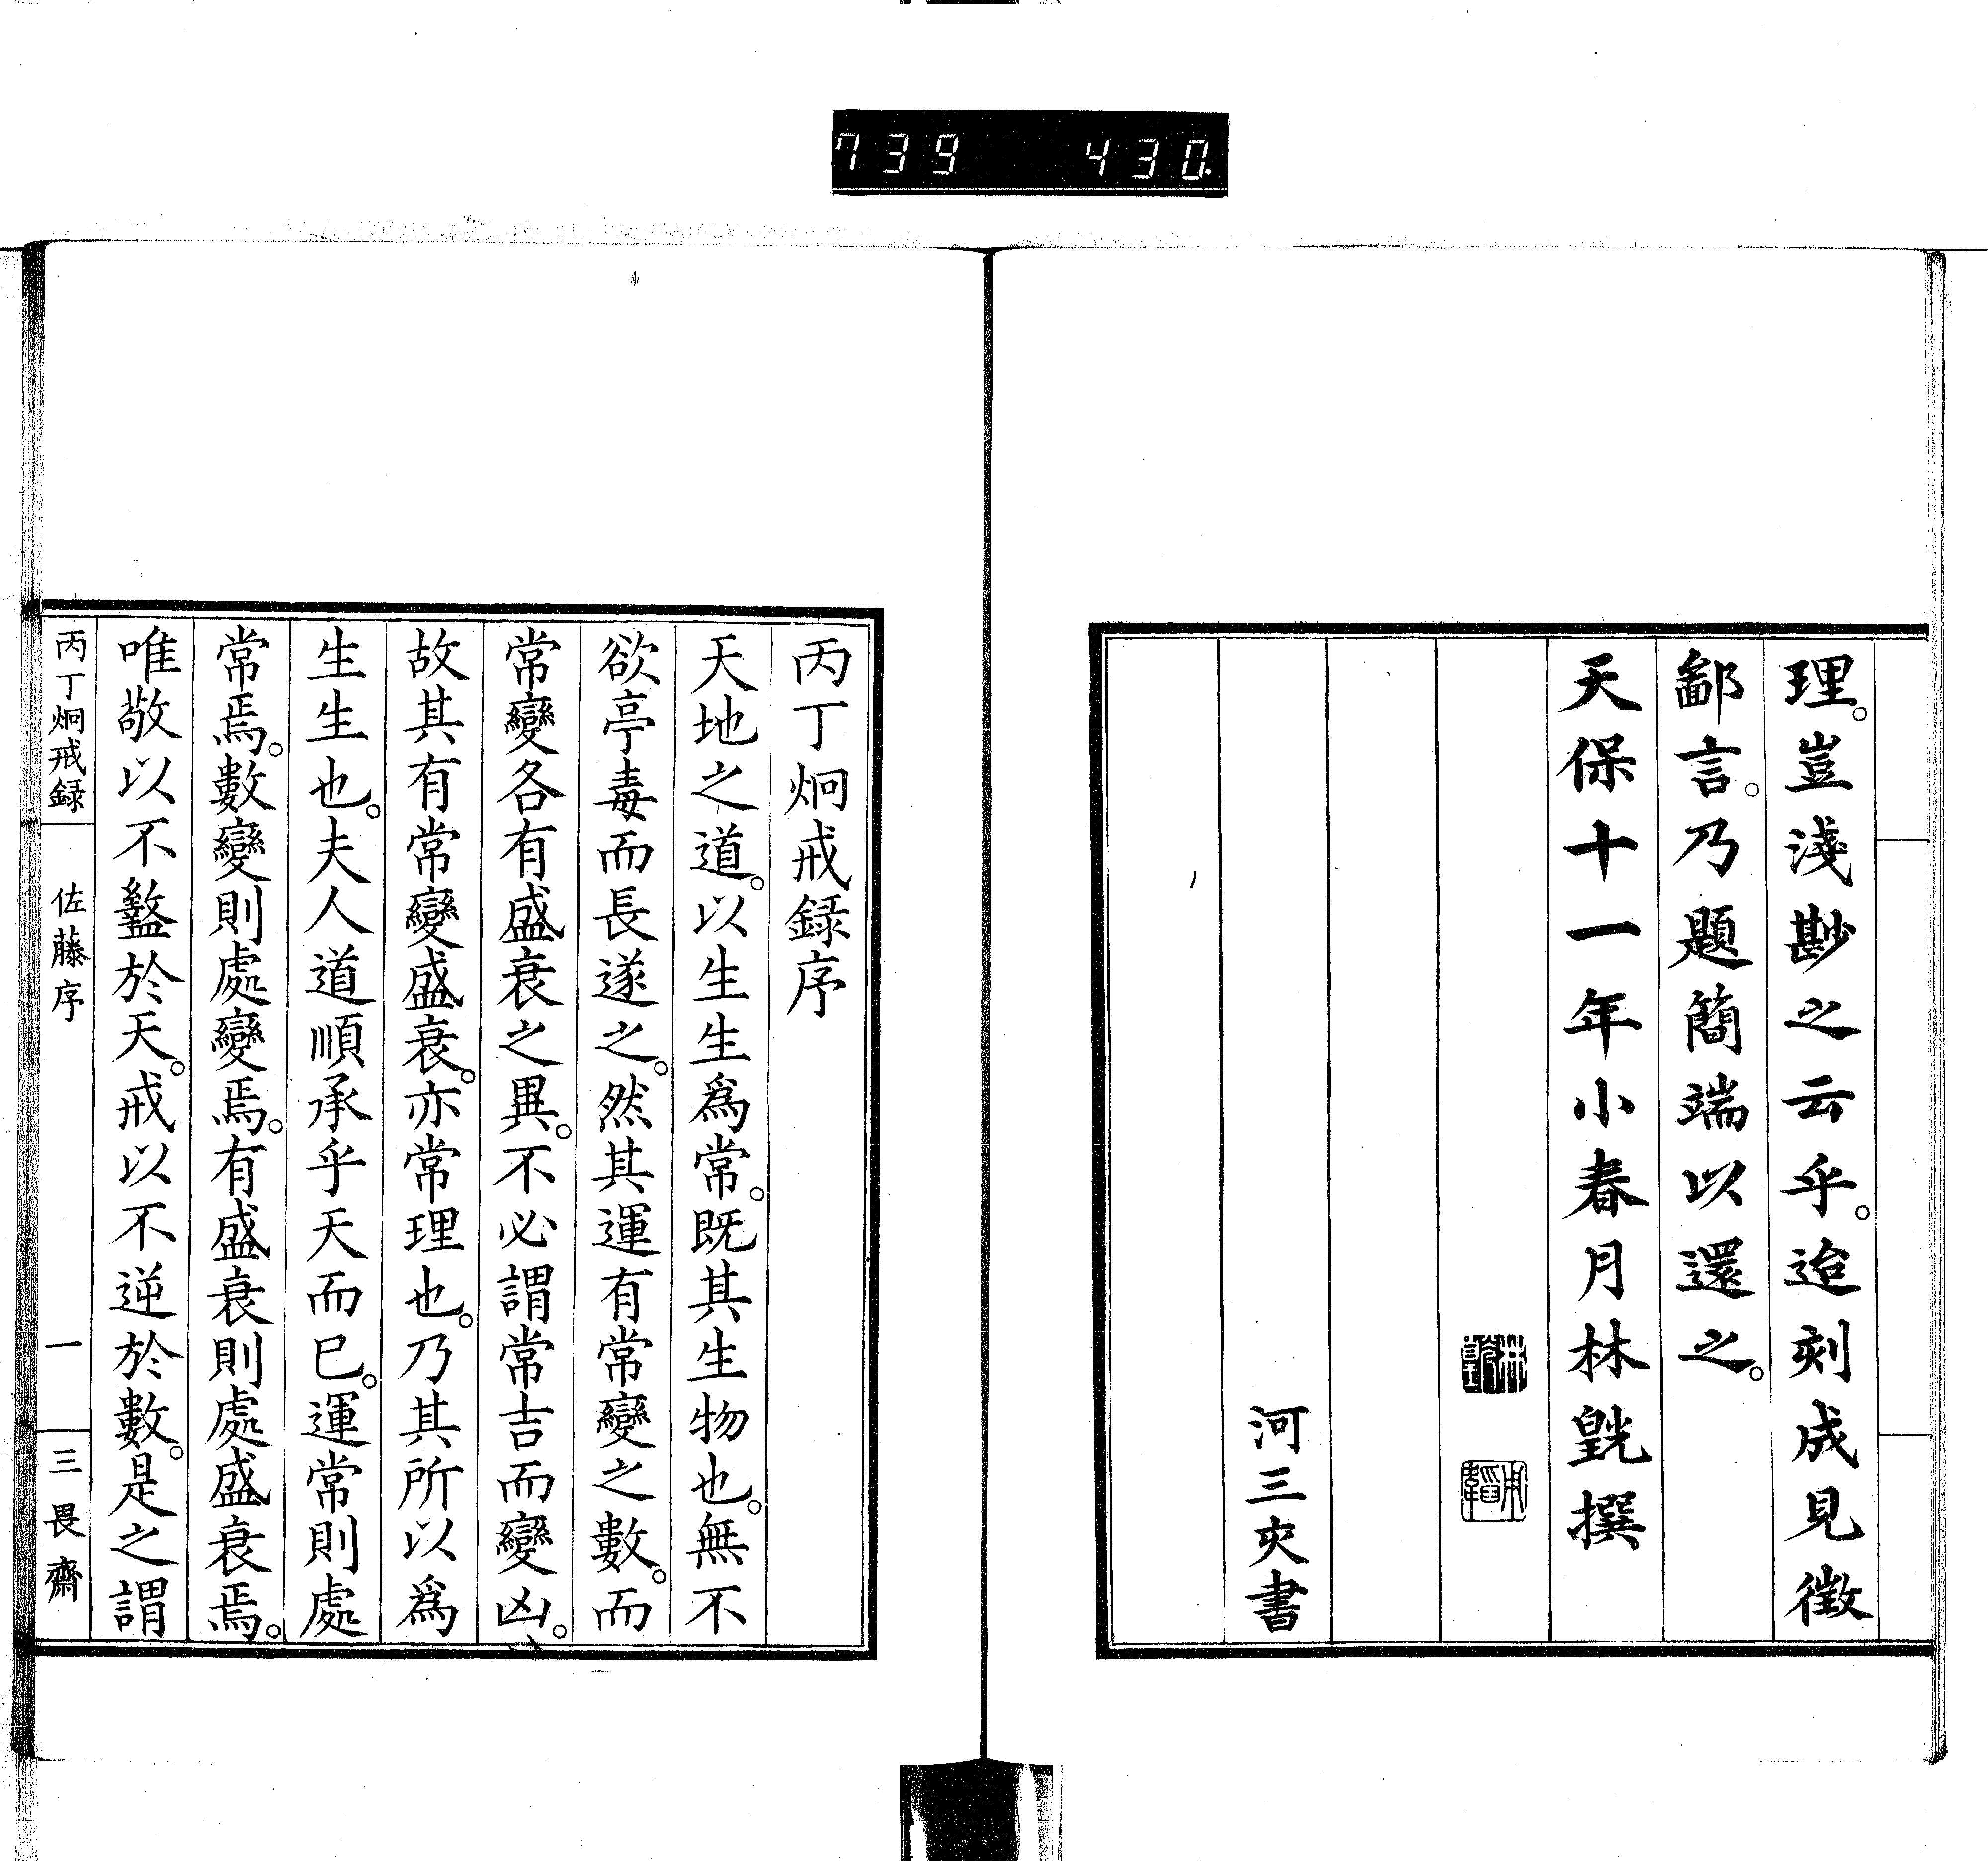 739 430
理。豈淺尠之云乎。迨刻成見徵
鄙言。乃題簡端以還之。
天保十一年小春月林皝撰
河三亥書
丙丁炯戒録序
天地之道。以生生爲常。既其生物也。無不
欲亭毒而長遂之。然其運有常變之數。而
常變各有盛衰之異。不必謂常吉而變凶。
故其有常變盛衰。亦常理也。乃其所以爲
生生也。夫人道順承乎天而已。運常則處
常焉。數變則處變焉。有盛衰則處盛衰焉。
唯敬以不盭於天。戒以不逆於數。是之謂
丙丁炯戒録 佐藤序 一 三畏齋